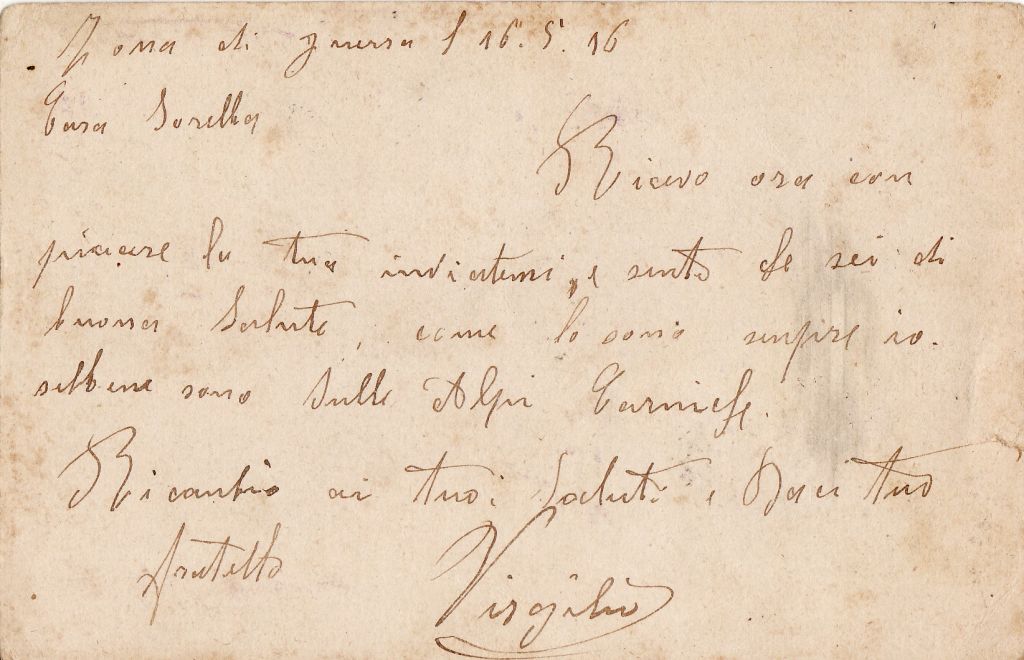 Zona di guerra l 16. 5. 16
Cara Sorella
Ricevo ora con
piacere la tua inviatemi, e sento che sei di
buona Salute, come lo sono sempre io.
sebbene sono Sulle Alpi Carniche.
Ricambio ai tuoi Saluti e Baci tuo
fratello
Virgilio